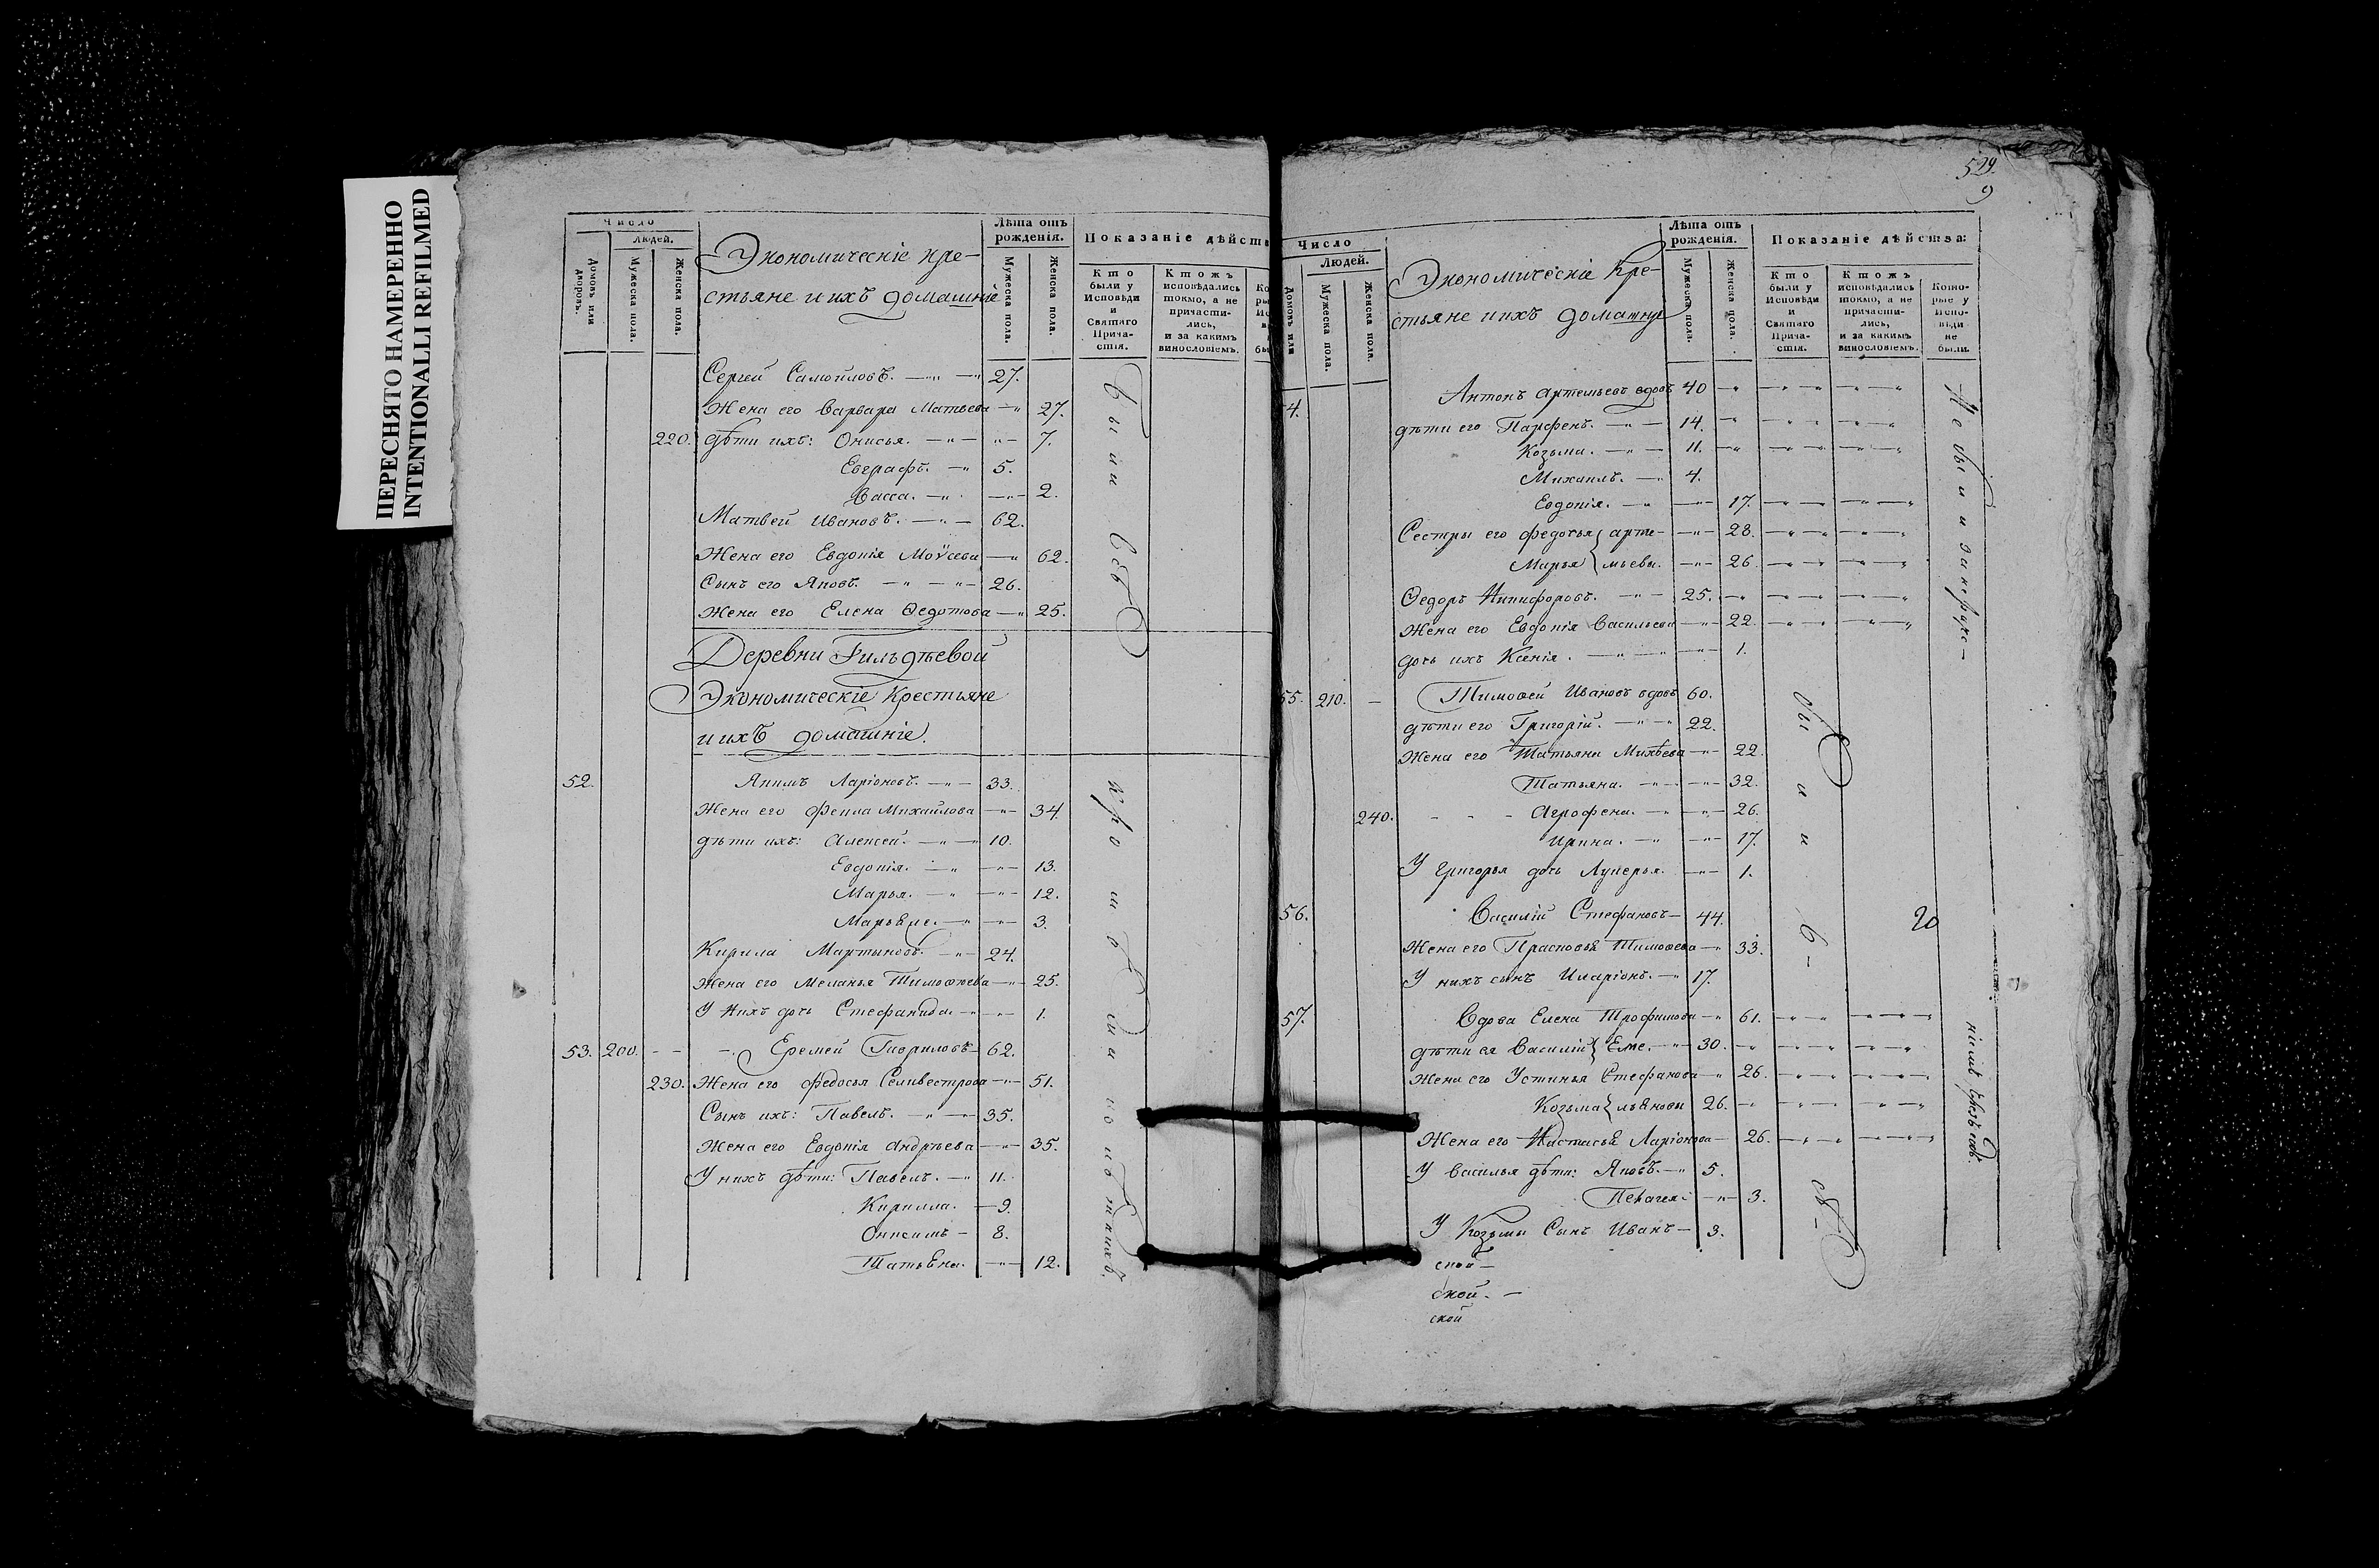 ПЕРЕСНЯТО НАМЕРЕННО
INTENTIONALLI REFILMED
Число
Людей.
Домовъ или дворовъ.
Мужеска пола.
Женска пола.
Экономическіе кре-
стьяне и ихъ домашніе
Лѣта отъ рожденія.
Мужеска пола.
Женска пола.
Показаніе дѣйств
Кто были у Исповѣди и Святаго Прича-стія.
Ктожъ исповѣдались токмо, а не причасти-лись, и за какимъ винословіемъ.
Сергей Самойловъ. 27.
Жена его Варвара Матвеева 27.
220. дѣти ихъ: Онисья. 7.
Евграфъ. 5.
Васса. 2.
Матвей Ивановъ. 62.
Жена его Евдокія Моѵсеева 62.
Сынъ его Яковъ. 26.
Жена его Елена Ѳедотова 25.
были всѣ
Деревни Гильдѣевой
Экономическіе Крестьяне
и ихъ домашніе.
52. Якимъ Ларіоновъ. 33.
Жена его Фекла Михайлова 34.
дѣти ихъ: Алексей. 10.
Евдокія. 13.
Марья. 12.
Марья же. 3.
Кирила Мартыновъ. 24.
Жена его Меланья Тимофѣева 25.
У нихъ дочь Стефанида. 1.
53. 200. Еремей Гавриловъ 62.
230. Жена его Федосья Селивестрова 51.
Сынъ ихъ: Павелъ. 35.
Жена его Евдокія Андрѣева 35.
У нихъ дѣти: Павелъ. 11.
Кирилла. 9.
Онисимъ 8.
Татьяна. 12.
529.
9
Число
Людей.
Домовъ или
Мужеска пола.
Женска пола.
Экономическіе Кре-
стьяне и ихъ домашніе
Лѣта отъ рожденія.
Мужеска пола.
Женска пола.
Показаніе дѣйства:
Кто были у Исповѣди и Святаго Прича-стія.
Ктожъ исповѣдались токмо, а не причасти-лись, и за какимъ винословіемъ.
Кото-рые у Испо-вѣди не были.
4. Антонъ Артемьевъ вдовъ 40
дѣти его Парфенъ. 14.
Козьма. 11.
Михаилъ. 4.
Евдокія. 17.
Сестры его Федосья арте- 28.
Марья мьевы. 26.
Ѳедоръ Никифоровъ. 25.
Жена его Евдокія Васильева 22.
дочь ихъ Ксенія. 1.
55. 210. Тимоѳей Ивановъ вдовъ 60.
дѣти его Григорій. 22.
Жена его Татьяна Михѣева 22.
Татьяна. 32.
240. Агрофена. 26.
Ирина. 17.
У Григорья дочь Лукерья. 1.
56. Василій Стефановъ 44.
Жена его Прасковья Тимоѳеева 33.
У нихъ сынъ Иларіонъ. 17.
20
57. Вдова Елена Трофимова 61.
дѣти ея Василій Еме. 30.
Жена его Устинья Стефанова 26.
Козьма льяновы 26.
Жена его Настасья Ларіонова 26.
У Василья дѣти: Яковъ. 5.
Пелагея. 3.
У Козьмы Сынъ Иванъ 3.
были
ской
ской.
ской